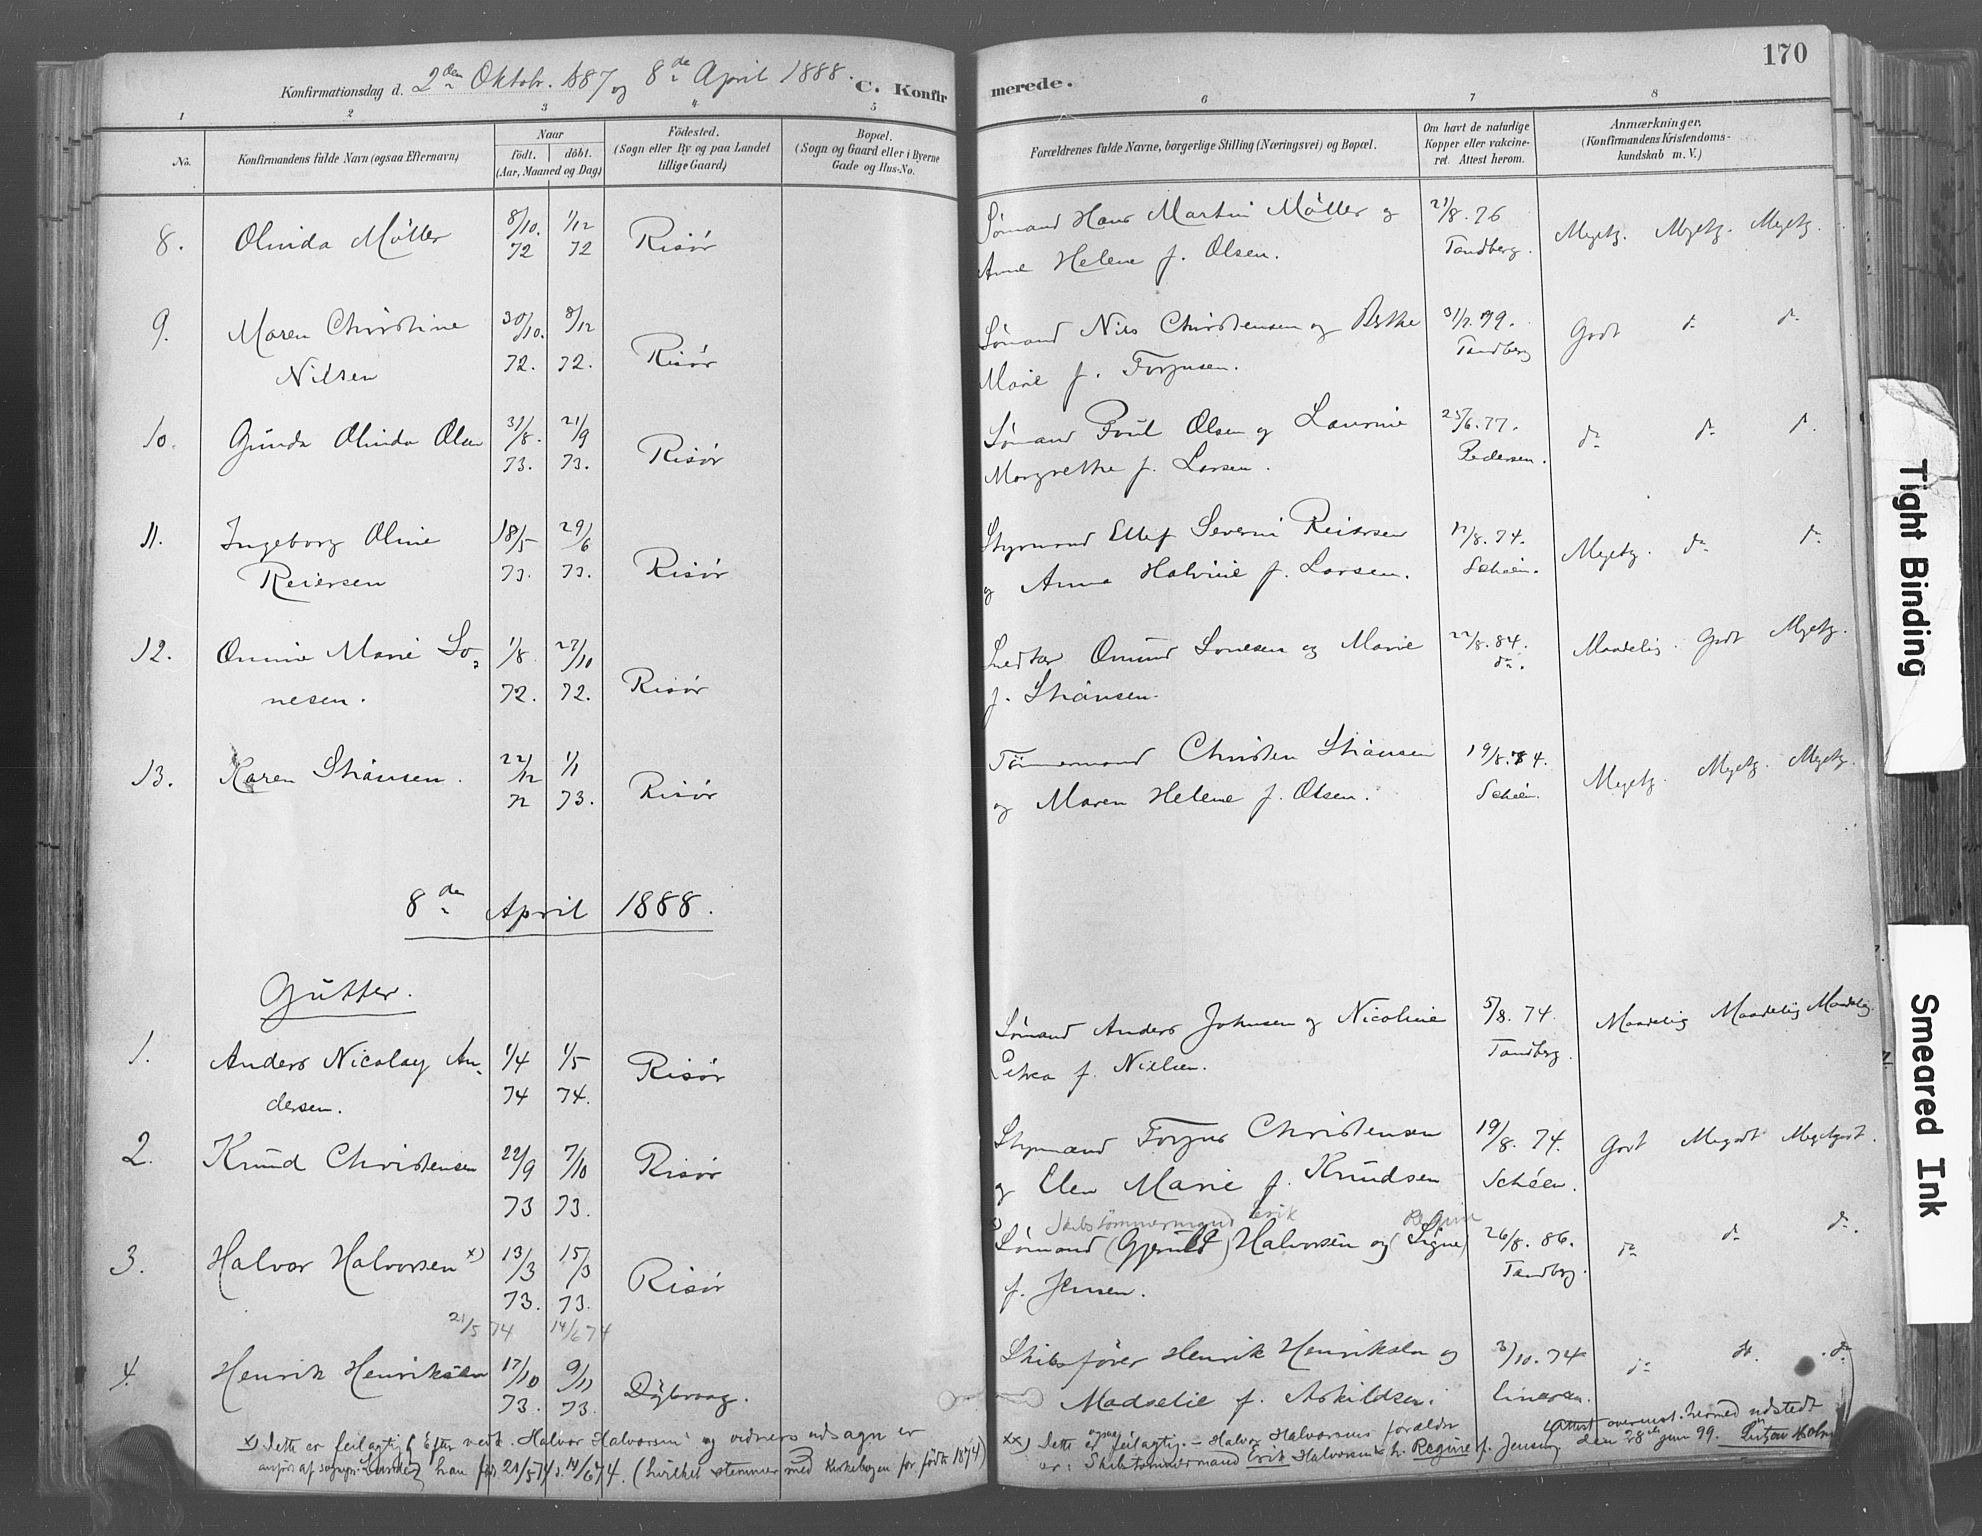 170
Konfirmationsdag d. 2den Oktobr. 1887 og 8de April 1888.
C. Konfirmerede.
1 2 3 4 5 6 7 8
No.
Konfirmandens fulde Navn (ogsaa Efternavn)
Naar
födt. döbt.
(Aar, Maaned og Dag)
Födested.
(Sogn eller By og paa Landet
tillige Gaard)
Bopæl.
(Sogn og Gaard eller i Byerne
Gade og Hus-No.
Forældrenes fulde Navne, borgerlige Stilling (Næringsvei) og Bopæl.
Om havt de naturlige
Kopper eller vakcine-
ret. Attest herom.
Anmærkninger.
(Konfirmandens Kristendoms-
kundskab m. V.)
8. Olinda Möller 8/10. 72 1/12 72 Risör Sömand Hans Martin Möller og 21/8. 76 Megetg. Megetg. Megetg.
Anne Helene f. Olsen. Tandberg.
9. Maren Christine 30/10. 8/12 Sömand Nils Christensen og Berthe 31/7. 79. Godt do do
Nilsen 72. 72. Risör Marie f. Torjusen. Tandberg
10. Gunda Olinda Olsen 31/8. 21/9 Sömand Poul Olsen og Laurine 25/6. 77. do do do
73. 73. Risör Margrethe f. Larsen. Pedersen.
11. Ingeborg Oline 18/5 29/6 Styrmand Ellef Severin Reiersen 12/8. 74. Megetg. do do
Reiersen 73. 73. Risör og Anna Halvine f. Larsen. Schéen.
12. Omine Marie Lo- 1/8. 27/10 Omund Lonesen og Marie 22/8. 84. Maadelig. Godt Megetg.
nesen. 72. 72. Risör f. Stiansen. do.
13. Karen Stiansen. 22/12 1/1 Tömmermand Christen Stiansen 19/8. 84. Megetg. Megetg. Megetg.
72 73. Risör og Maren Helene f. Olsen. Schéen.
8de April 1888.
Gutter.
1. Anders Nicolay An- 1/4 1/5 Risör Sömand Anders Johnsen og Nicoline 5/8. 74. Maadelig Maadelig Maadelig.
dersen. 74 74. Petrea f. Nielsen. Tandberg.
2. Knud Christensen 22/9 7/10 Risör Styrmand Torjus Christensen 19/8. 74. Godt Megodt Megetgodt.
73 73. og Elen Marie f. Knudsen Schéen.
Skibstömmermand Erik Regine
3. Halvor Halvorsen x) 13/3 15/3 Risör Sömand (Gjeruld) Halvorsen og (Signe) 26/8. 86. do do do.
73. 73. f. Jensen. Tandberg.
21/5 74 14/6 74
4. Henrik Henriksen 17/10 9/11 Skibsförer Henrik Henriksen og 3/10. 74 do do. do
73. 73. Dybvaag. Madselie f. Askildsen. Einersen.
x) Dette er feilagtig. Efter Halvor Halvorsens og vidners udsagn er
han föd 21/5 74, d. 14/6 74. (hvilket stemmer med Kirkebogen for födte 1874)
xx) Dette er ogsaa feilagtig. – Halvor Halvorsens forældre
er: Skibstömmermand Erik Halvorsen & h. Regine f. Jensen.
hermed udstedt
den 28de Juni 99. Holm
Tight Binding
Smeared Ink